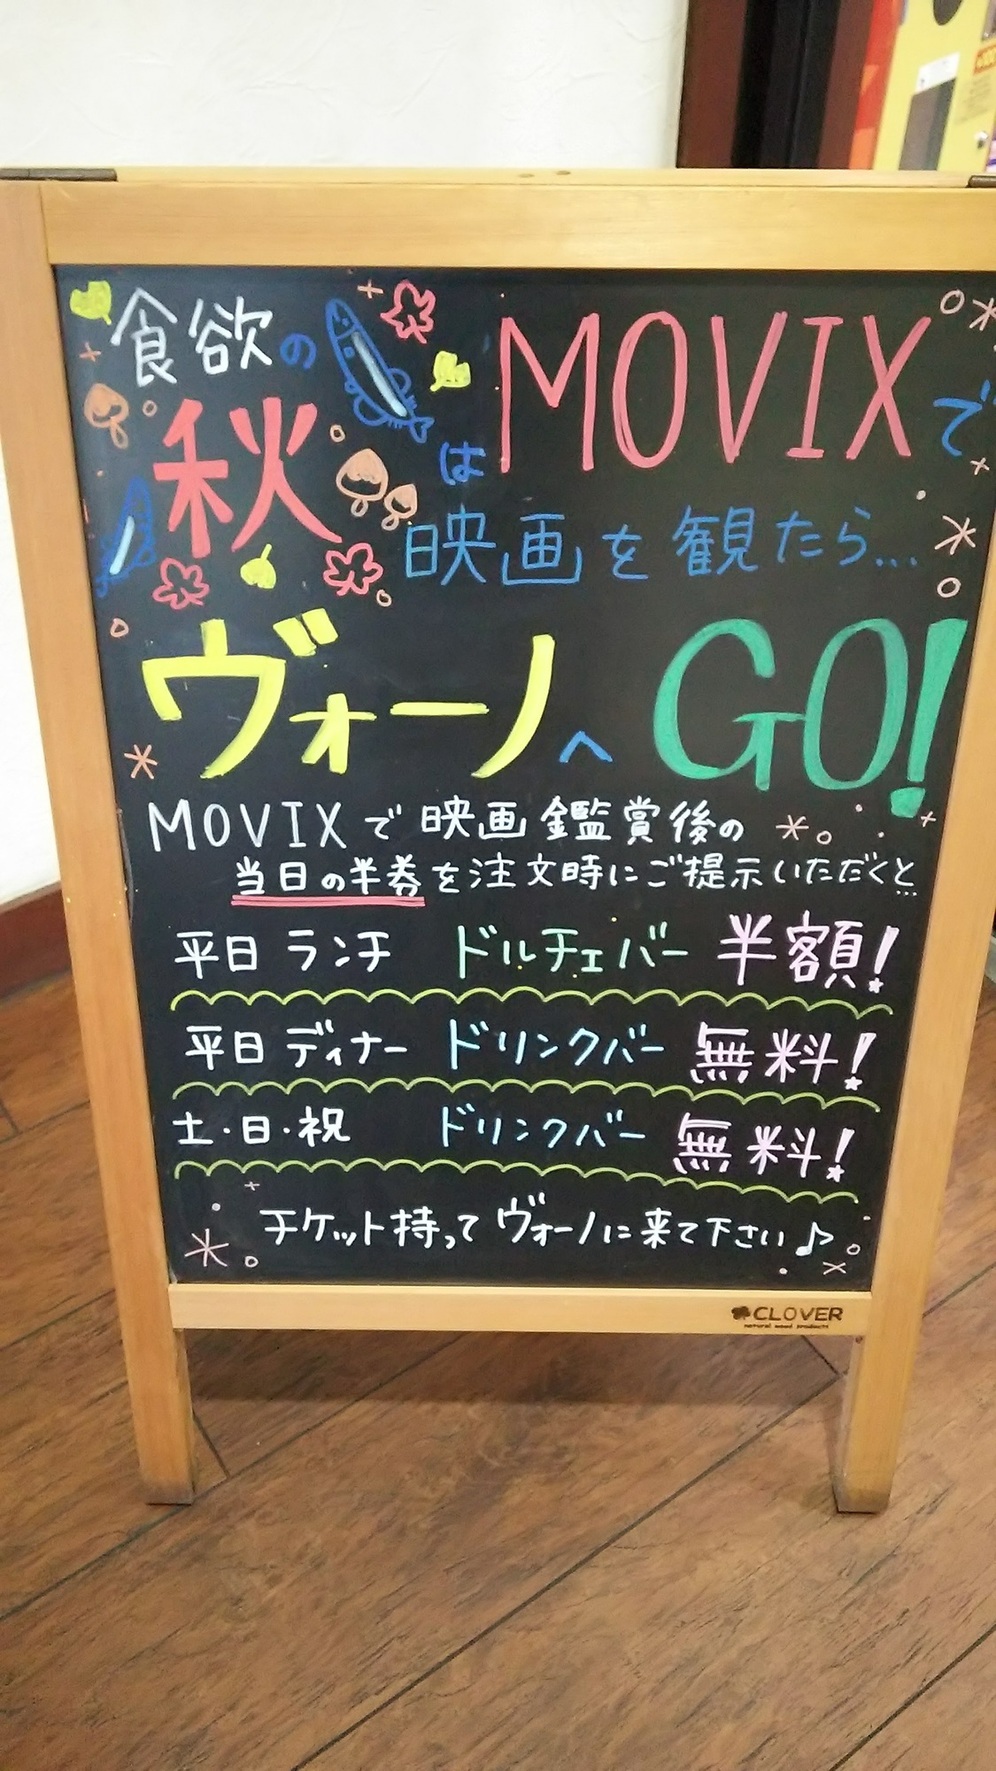 食欲の
秋は
MOVIXで
映画を観たら...
ヴォーノへGO!
MOVIXで映画鑑賞後の
当日の半券を注文時にご提示いただくと...
平日ランチ ドルチェバー 半額!
平日ディナー ドリンクバー 無料!
土・日・祝 ドリンクバー 無料!
チケット持ってヴォーノに来て下さい♪
CLOVER
natural wood products